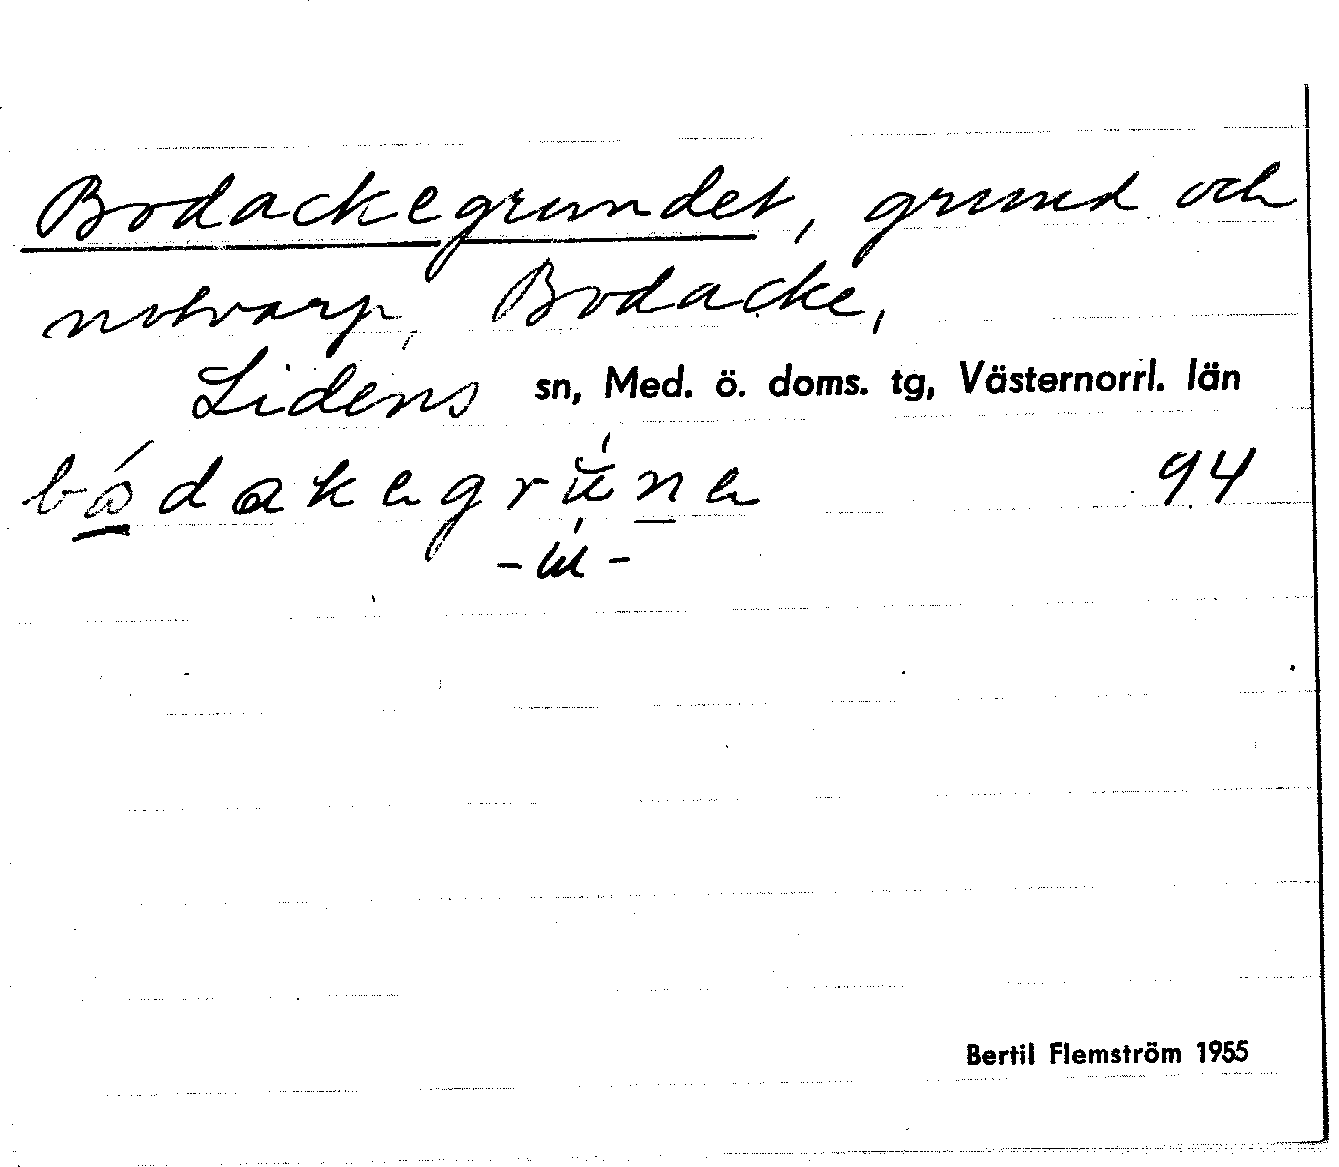 Bodackegrundet, grund och
notvarp, Bodacke,
Lidens sn, Med. ö. doms. tg, Västernorrl. län
bódakegrune 94
Bertil Flemström 1955